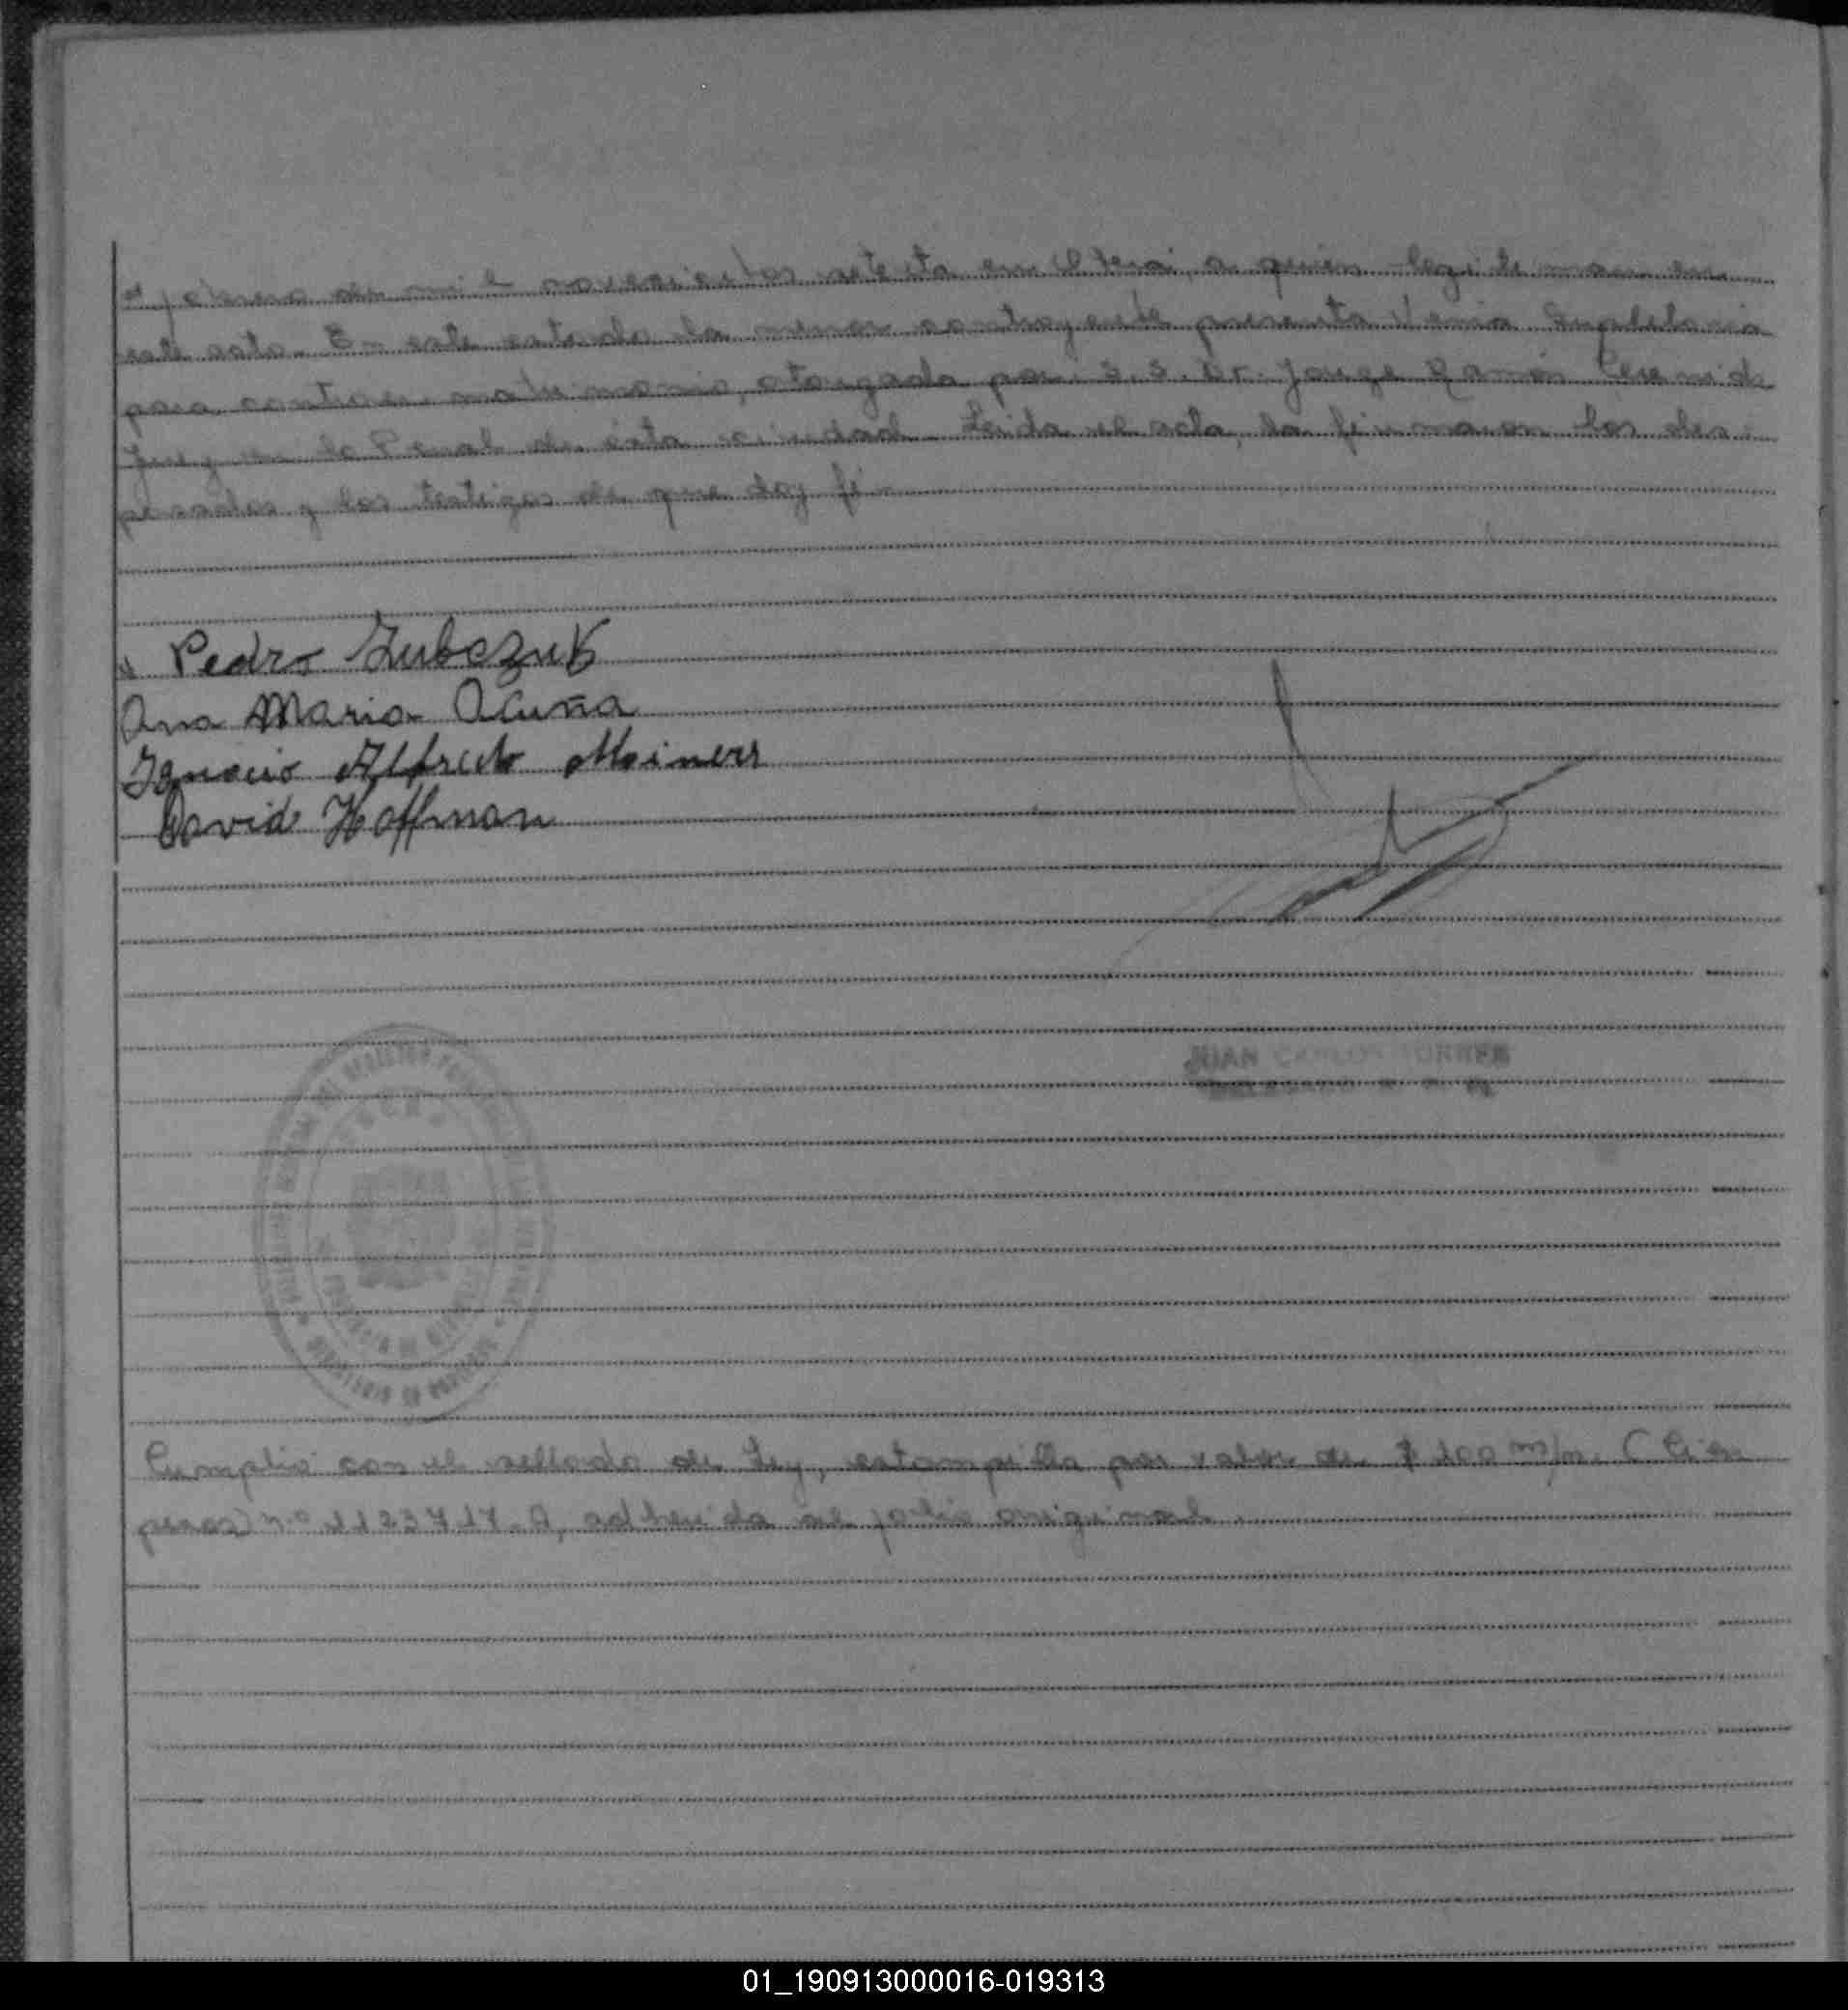 febrero de mil novecientos setenta en Oberá, a quien legitiman en
este acto. En este estado la menor contrayente presenta Venia Supletoria
para contraer matrimonio, otorgada por S.S. Dr. Jorge Ramón
Juez en lo Penal de ésta ciudad. Leida el acta, la firmaron los des
posados y los testigos de que doy fé.
Pedro Zubczuk
Ana Maria Acuña
Ignacio Alfredo Meiners
David Hoffman
JUAN CARLOS TORRES
DELEGADO
PROVINCIA DE MISIONES
Cumplió con el sellado de Ley, estampilla por valor de $ 100 m/n. (Cien
pesos) n.º 1123717-A, adherida al folio original.
01_190913000016-019313